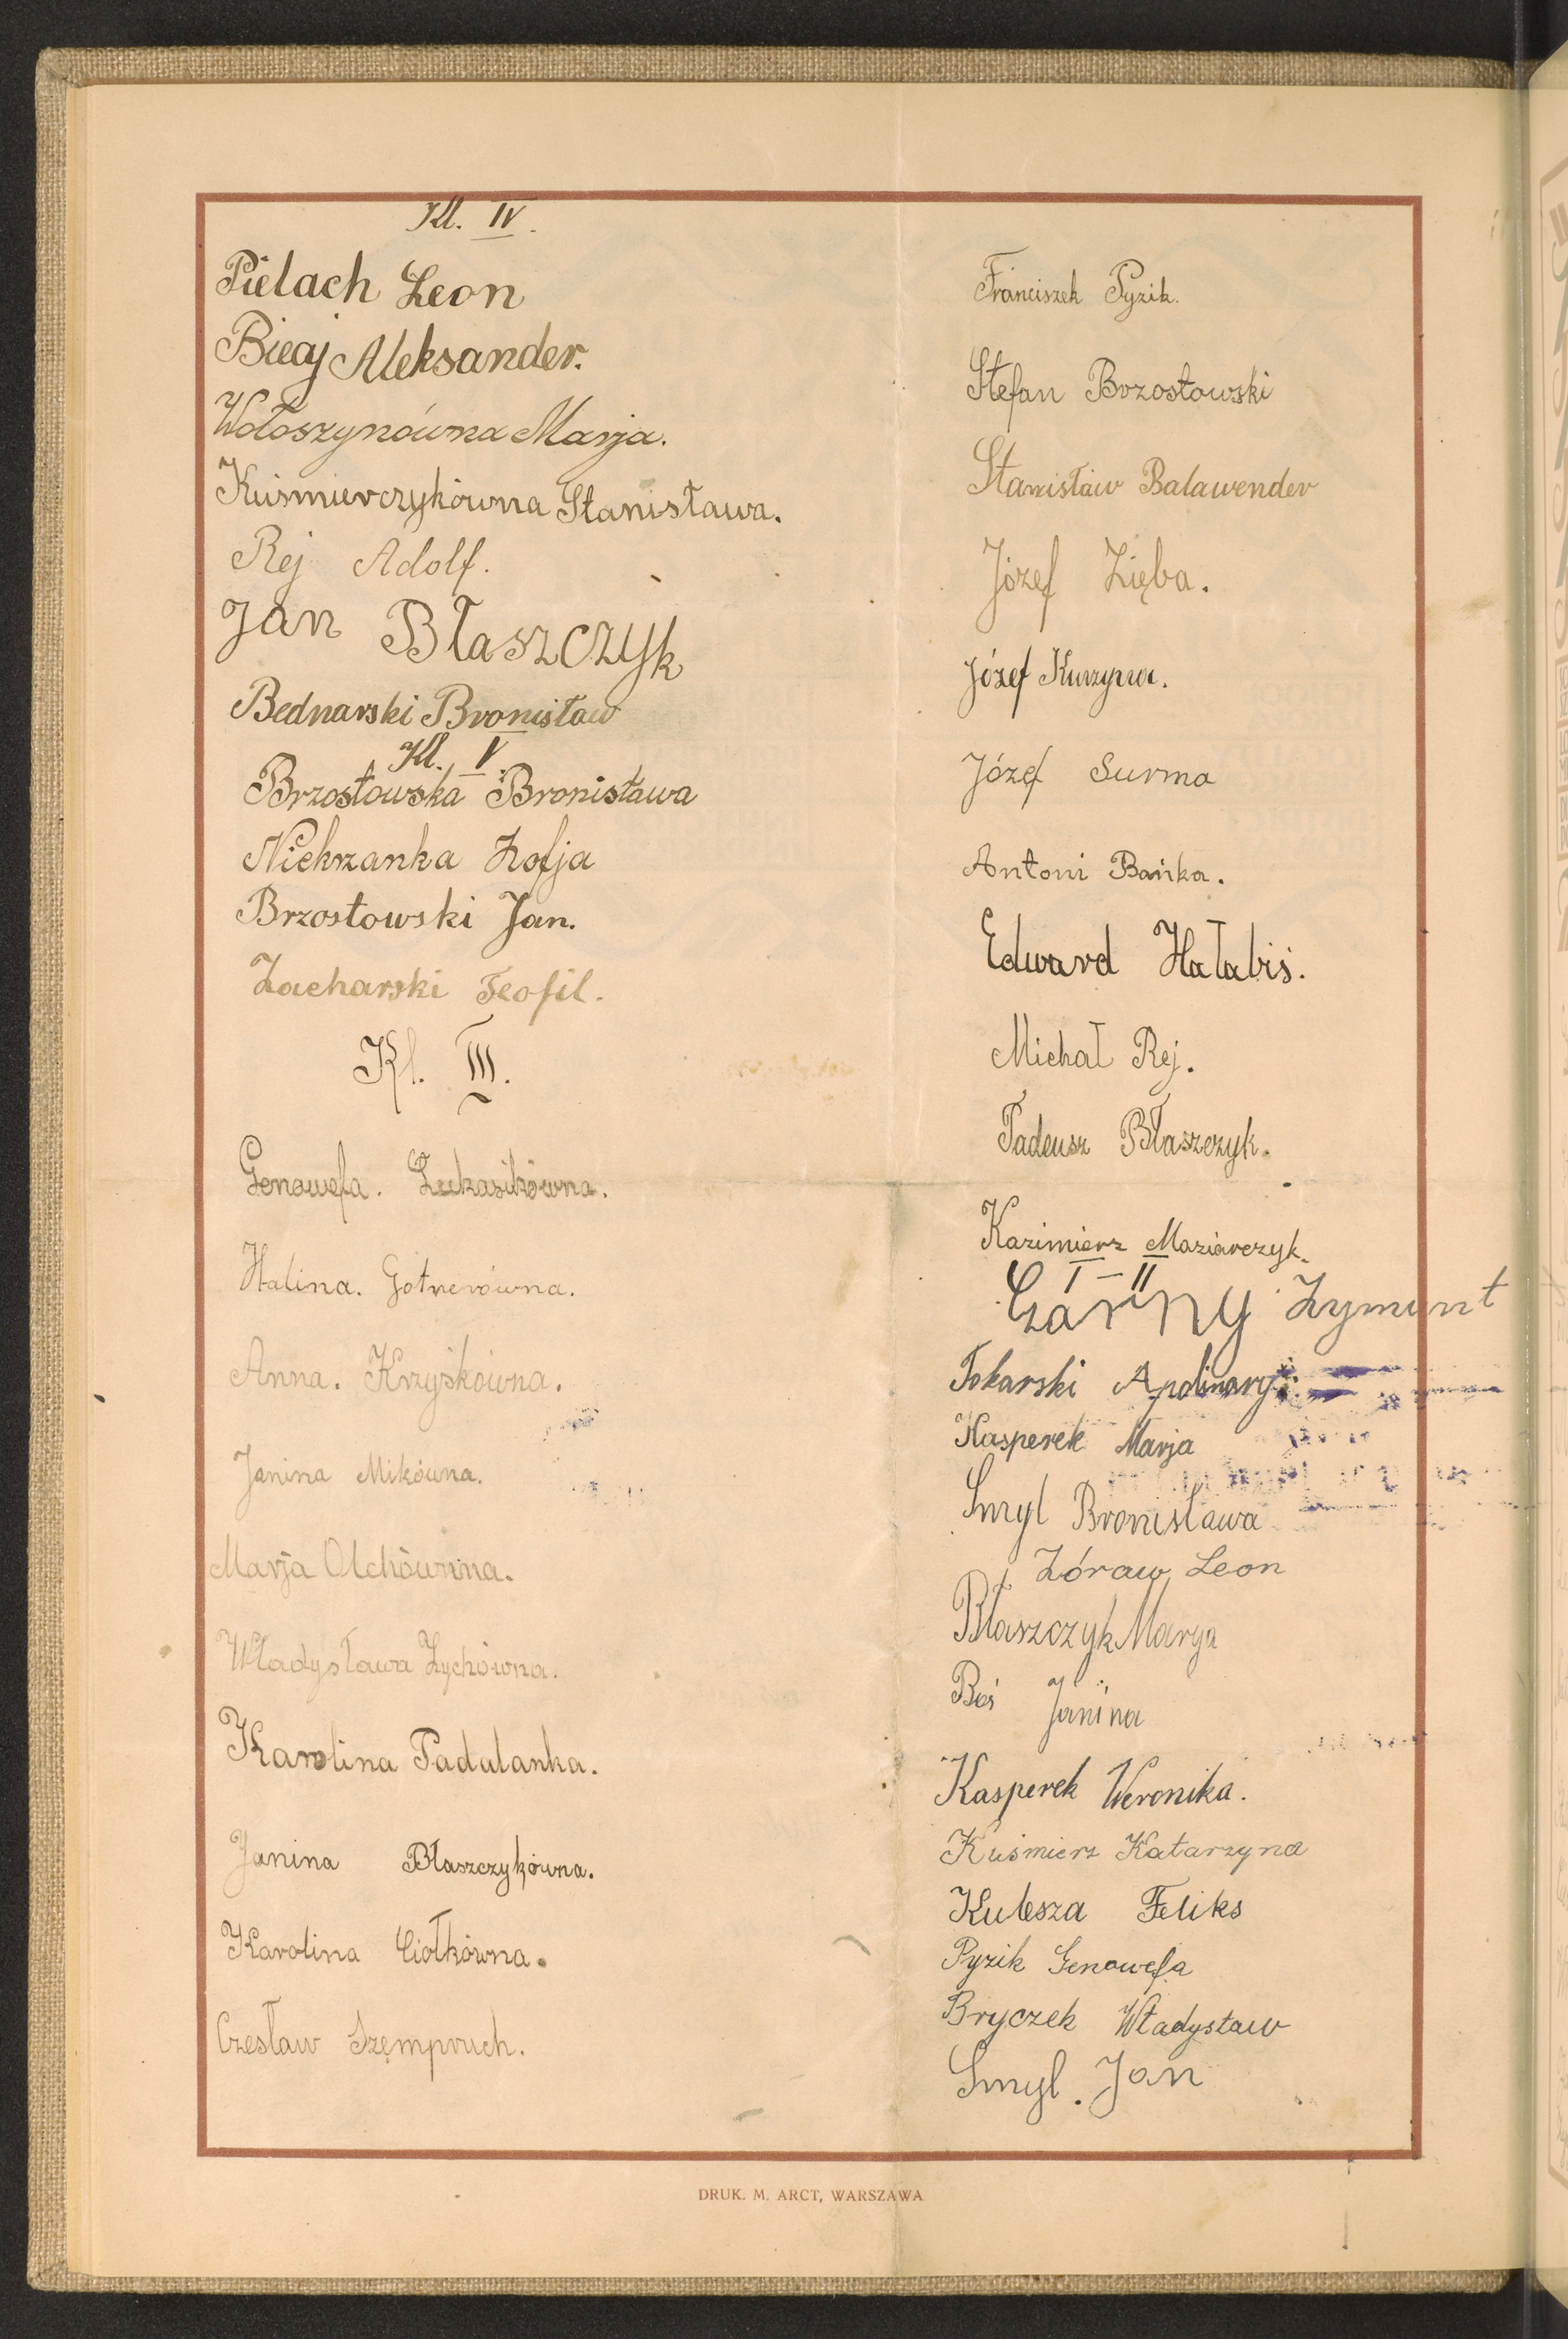 Kl. IV.
Pielach Leon
Biegj Aleksander.
Wołoszynówna Marja.
Kuśmierczykówna Stanisława.
Rej Adolf.
Jan Błaszczyk
Bednarski Bronisław
Kl. V.
Brzostowska Bronisława
Niekrzanka Zofja
Brzostowski Jan.
Zacharski Teofil.
Kl. III.
Genowefa. Łukasikówna.
Halina. Gotnerówna.
Anna. Krzyśkówna.
Janina Mikówna.
Marja Olchównna.
Władysława Zychówna.
Karolina Padulanka.
Janina Błaszczykówna.
Karolina Ciołkówna.
Czesław Szęmpruch.
Franciszek Pyzik.
Stefan Brzostowski
Stanisław Balawender
Józef Zięba.
Józef Kurzyna.
Józef Surma
Antoni Bańka.
Edward Hałabiś.
Michał Rej.
Tadeusz Błaszczyk.
Kazimierz Maziarczyk.
I – II
Czarny Zymunt
Tokarski Apolinary
Kasperek Marja
Smyl Bronisława
Żóraw Leon
Błaszczyk Marya
Boś Janina
Kasperek Weronika.
Kuśmierz Katarzyna
Kulesza Feliks
Pyzik Genowefa
Bryczek Władysław
Smyl. Jan
DRUK. M. ARCT, WARSZAWA